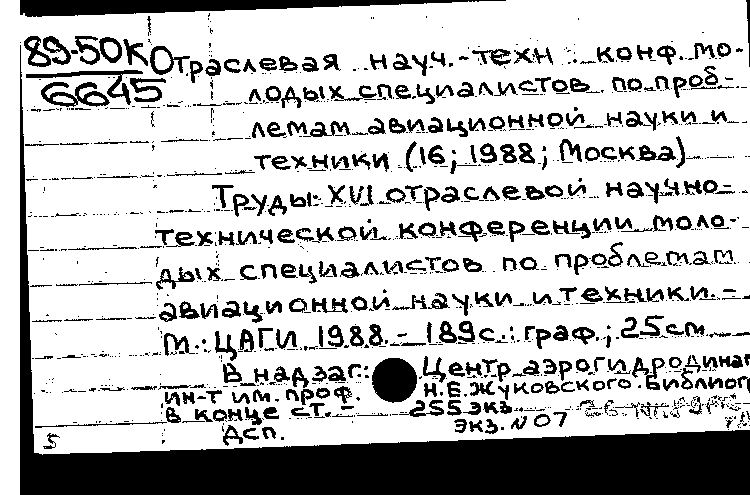 89-50К
6645
Отраслевая науч.-техн. конф. мо-
лодых специалистов по проб-
лемам авиационной науки и
техники (16; 1988; Москва)
Труды XVI отраслевой научно-
технической конференции моло-
дых специалистов по проблемам
авиационной науки и техники. -
М.: ЦАГИ, 1988. - 189с.: граф.; 25см
В надзаг.: Центр. аэрогидродинам
ин-т им. проф. Н.Е.Жуковского. Библиог
в конце ст. - 255 экз.
Дсп. экз. N 07
5